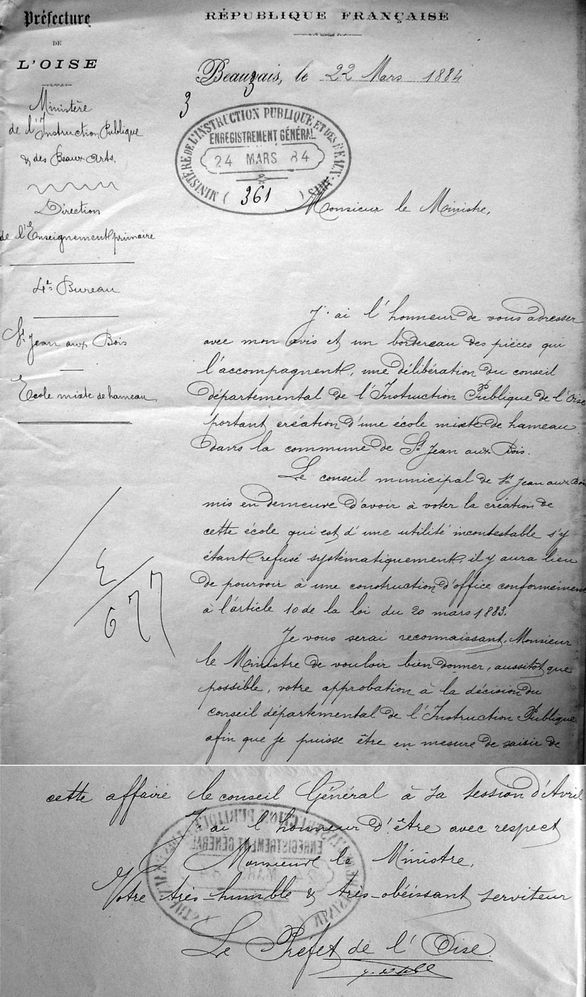 Préfecture
DE
L'OISE
RÉPUBLIQUE FRANÇAISE
Beauvais, le 22 Mars 1884
3
3
Ministère
de l'Instruction Publique
& des Beaux Arts.
MINISTÈRE DE L'INSTRUCTION PUBLIQUE ET DES BEAUX ARTS
ENREGISTREMENT GÉNÉRAL
24 MARS 84
( 361 )
Direction
de l'Enseignement primaire
4e Bureau
St Jean aux Bois
Ecole mixte de hameau
Monsieur le Ministre,
J'ai l'honneur de vous adresser
avec mon avis et un bordereau des pièces qui
l'accompagnent, une délibération du conseil
Départemental de l'Instruction Publique de l'Oise
portant création d'une école mixte de hameau
dans la commune de St Jean aux Bois.
Le conseil municipal de St Jean aux Bois
mis en demeure d'avoir à voter la création de
cette école qui est d'une utilité incontestable s'y
étant refusé systématiquement, il y aura lieu
de pourvoir à une construction d'office conformément
à l'article 10 de la loi du 20 mars 1883.
Je vous serai reconnaissant, Monsieur
le Ministre de vouloir bien donner, aussitôt que
possible, votre approbation à la décision du
conseil départemental de l'Instruction Publique
afin que je puisse être en mesure de saisir de
677
cette affaire le conseil Général à sa session d'Avril
J'ai l'honneur d'être avec respect
Monsieur le Ministre,
Votre très-humble & très-obéissant serviteur
Le Préfet de l'Oise